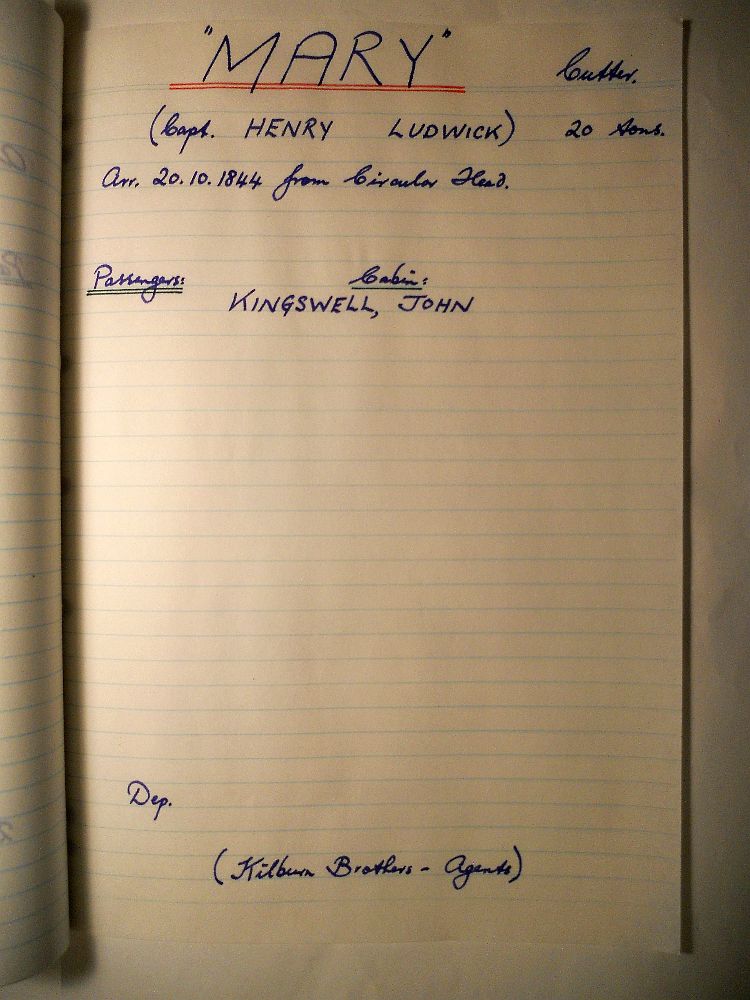 "MARY" Cutter.
(Capt. HENRY LUDWICK) 20 tons.
Arr. 20.10.1844 from Circular Head.
Passengers: Cabin:
KINGSWELL, JOHN
Dep.
(Kilburn Brothers - Agents)